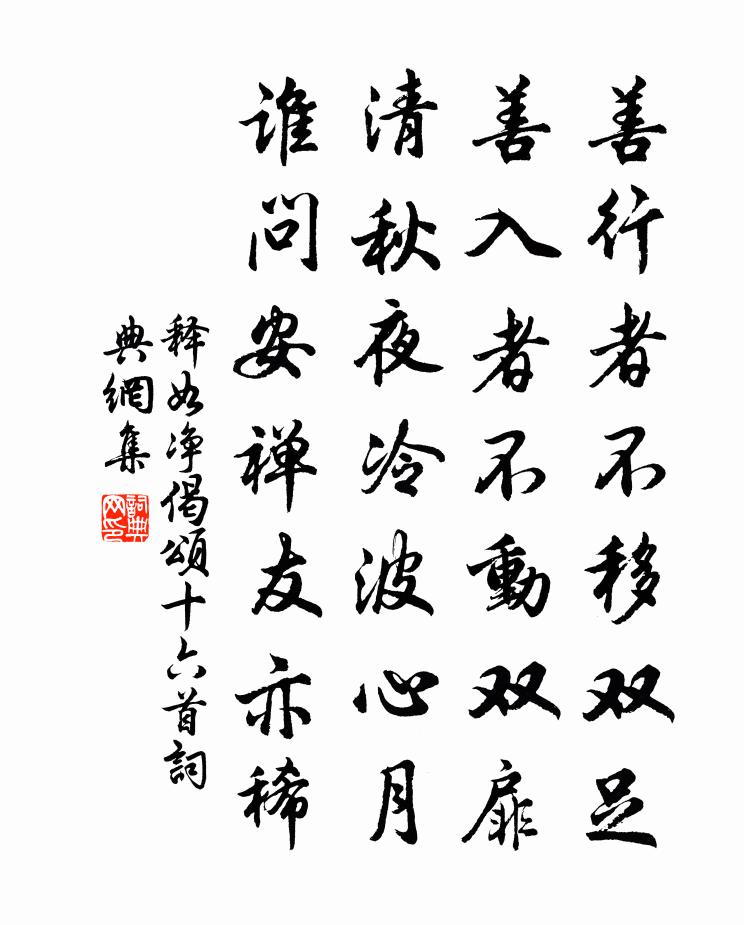 善行者不移双足
善入者不動双扉
清秋夜冷波心月
谁问安禅友亦稀
释如净偈頌十六首詞
典網集
詞典网印